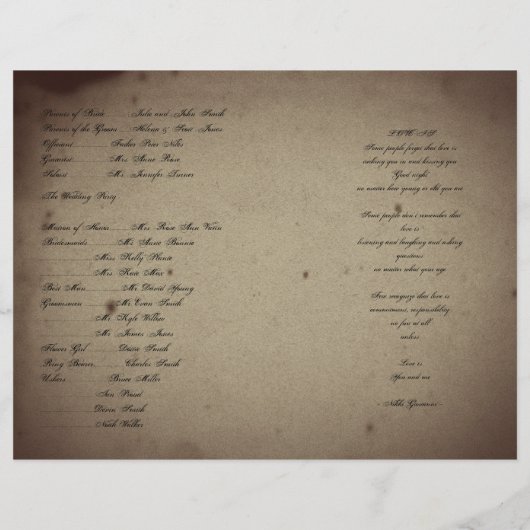 Parents of Bride .......... Julie and John Smith
Parents of the Groom .... Helena & Scott Jones
Officiant .......... Father Peter Niles
Guitarist .......... Mrs Anne Rose
Soloist .......... Ms Jennifer Tinner
The Wedding Party
Matron of Honor .......... Mrs Rose Ann
Bridesmaids .......... Ms Anne Bonnie
Miss Kelly Please
Mrs Kate Max
Best Man .......... Mr David Young
Groomsmen .......... Mr Evan Smith
Mr Kyle Wilbur
Mr James Jones
Flower Girl .......... Diane Smith
Ring Bearer .......... Charles Smith
Ushers .......... Bruce Miller
Ian
Devin Smith
Noah Walker
LOVE IS
Some people forget that love is
tucking you in and kissing you
Good night
no matter how young or old you are
Some people don't remember that
love is
listening and laughing and asking
questions
no matter what your age
Few recognize that love is
commitment, responsibility
no fun at all
unless
Love is
You and me
- Nikki Giovanni -